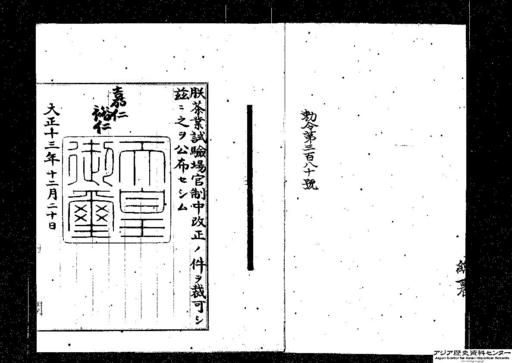 勅令第三百八十號
朕茶業試驗場官制中改正ノ件ヲ裁可シ
茲ニ之ヲ公布セシム
嘉仁
裕仁
天皇
御璽
大正十三年十二月二十日
アジア歴史資料センター
Japan Center for Asian Historical Records